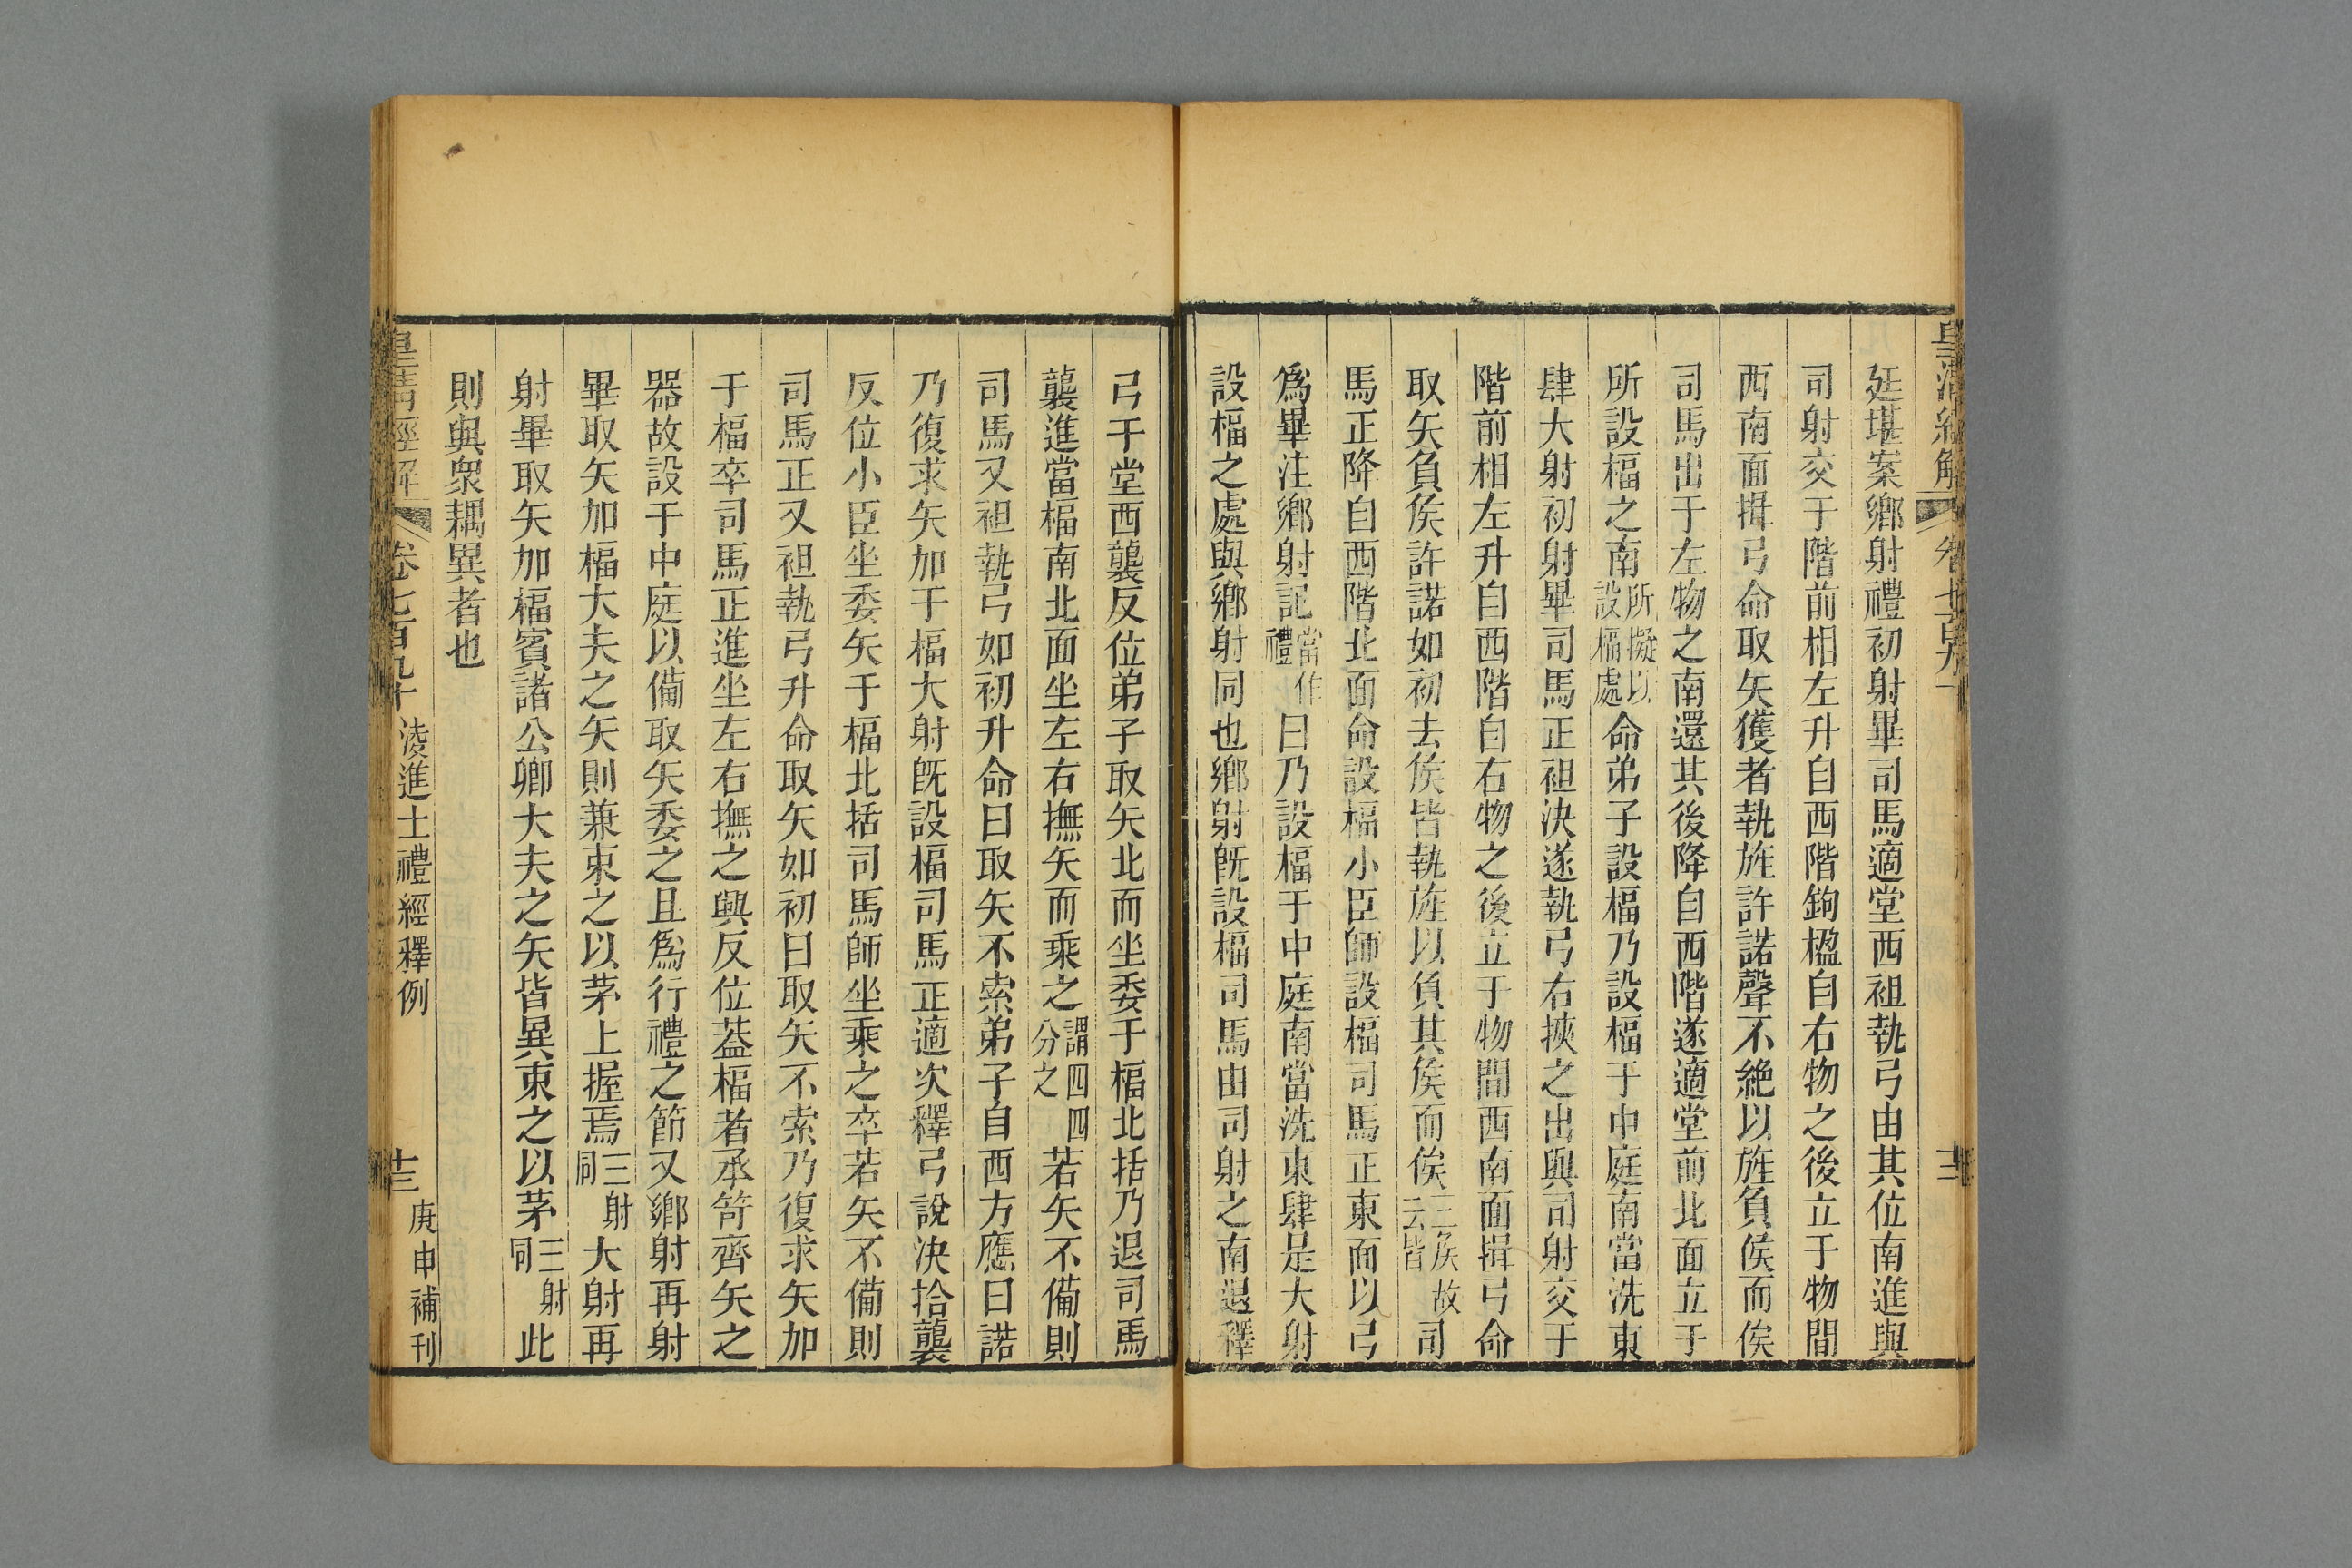 皇清經解
廷堪案鄉射禮初射畢司馬適堂西袒執弓由其位南進與
司射交于階前相左升自西階鉤楹自右物之後立于物間
西南面揖弓命取矢獲者執旌許諾聲不絶以旌負侯而俟
司馬出于左物之南還其後降自西階遂適堂前北面立于
所設楅之南所擬以設楅處命弟子設楅乃設楅于中庭南當洗東
肆大射初射畢司馬正袒決遂執弓右挾之出與司射交于
階前相左升自西階自右物之後立于物間西南面揖弓命
取矢負侯許諾如初去侯皆執旌以負其侯而俟三侯故云皆司
馬正降自西階北面命設楅小臣師設楅司馬正東面以弓
爲畢注鄉射記當作禮曰乃設楅于中庭南當洗東肆是大射
設楅之處與鄉射同也鄉射旣設楅司馬由司射之南退釋
弓于堂西襲反位弟子取矢北面坐委于楅北括乃退司馬
襲進當楅南北面坐左右撫矢而乘之謂四四分之若矢不備則
司馬又袒執弓如初升命曰取矢不索弟子自西方應曰諾
乃復求矢加于楅大射旣設楅司馬正適次釋弓說決拾襲
反位小臣坐委矢于楅北括司馬師坐乘之卒若矢不備則
司馬正又袒執弓升命取矢如初曰取矢不索乃復求矢加
于楅卒司馬正進坐左右撫之興反位葢楅者承笴齊矢之
器故設于中庭以備取矢委之且爲行禮之節又鄉射再射
畢取矢加楅大夫之矢則兼束之以茅上握焉三射同大射再
射畢取矢加楅賓諸公卿大夫之矢皆異束之以茅三射同此
則與衆耦異者也
皇清經解 卷七百九十 淩進士禮經釋例 十三 庚申補刊